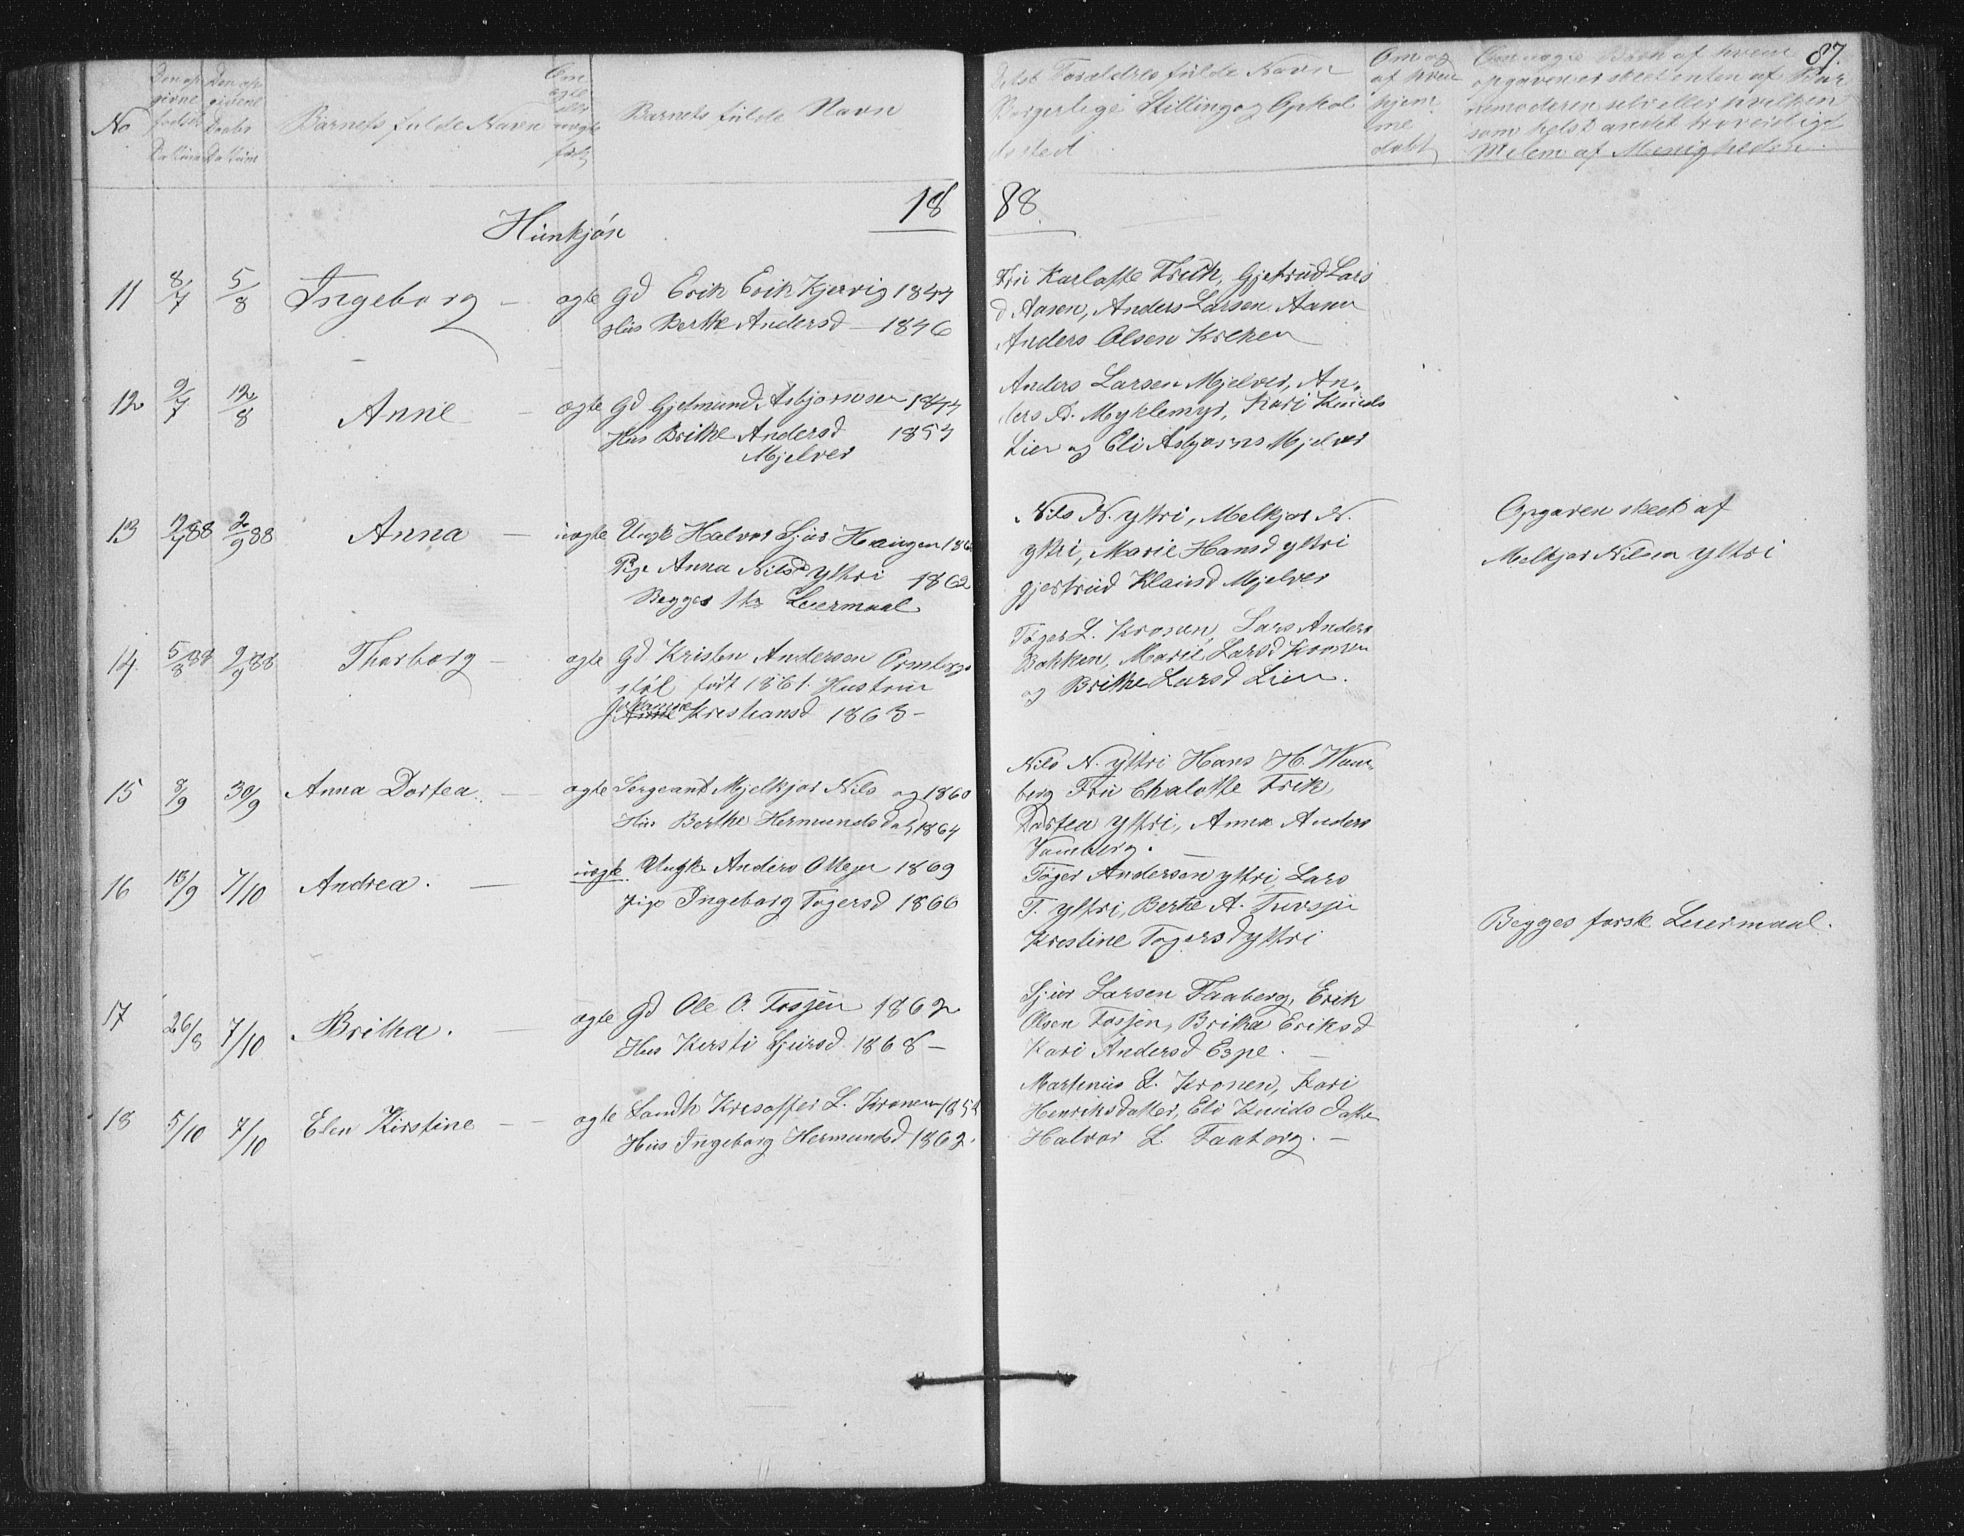 87.
No
Den op
givne
fødsels
Datum
Den op
givene
Daabs
Datum
Barnets fulde Navn
Om
ægte
eller
uægte
født
Barnets fulde Navn
Forældres fulde Navn
Borgerlige Stilling og Ophol
sted
Om og
af hvem
hjem
me
døbt
opgaven er skeet enten af Bar
nemoderen selv eller hvilken
som helst andet troværdigt
Melem af Menigheden
18 88
Hunkjøn
11 8/7 5/8 Ingeborg — ægte Gd Erik Erik Kjervig 1844
Hus Berthe Andersd — 1846
Fru Karlotte Frich, Gjetrud Lars
d Aasen, Anders Larsen Aasen
Anders Olsen Krehen
12 9/7 12/8 Anne — ægte Gd Gjetmund Asbjornsen 1844
Hus Brithe Andersd 1854
Mjelver
Anders Larsen Mjelver, An-
ders A. Myklemyr, Kari Knuds
Lien og Eli Asbjørns Mjelver
13 88 2/9 88 Anna — uægte Ungk Halvor Sjur Haugen
Pige Anna Nilsd yttri 1862
Begges 1te Leiermaal
Nils N. yttri, Melkjor N.
yttri, Marie Hansd yttri
gjertrud Klausd Mjelver
Opgaven skeet af
Melkjor Nilsen yttri
14. 5/8 88 2/9 88 Thorborg — ægte Gd Kristen Andersen Ormberg
støl født 1861. Hustru
Johanne
Anne Kristiansd 1863 —
Tøger L. Kronen, Lars Anders
Bakken, Marie Larsd Kronen
og Brithe Larsd Lien.
15 8/9 30/9 Anna Dortea. — ægte Sergeant Mjelkjor Nils og 1860
Hus Berthe Hermundsdat, 1864
Nils N. yttri Hans H. Vam-
berg Fru Chalotte Frik,
Dortea yttri, Anna Anders
Vamberg.
16 13/9 7/10 Andrea. — uægte. Ungk Anders Ottesen 1869
Pige Ingeborg Togersd 1866
Tøger Andersen yttri, Lars
T. yttri, Berte A.
Kristine Togersd yttri
Begges første Leiermaal.
17 26/8 7/10 Britha. — ægte Gd Ole O. Fossøen 1862
Hus Kersti Sjursd 1868 —
Sjur Larsen Faaberg, Erik
Olsen Fossøen, Britha Eriksd
Kari Andersd Espe. —
18 5/10 7/10 Elen Kirstine — ægte Landh Kristoffer L. Kronen
Hus Ingeborg Hermundsd. 1862.
Martinus L. Kronen, Kari
Henriksdatter, Eli Knuds datte
Halvor L Faaberg. —